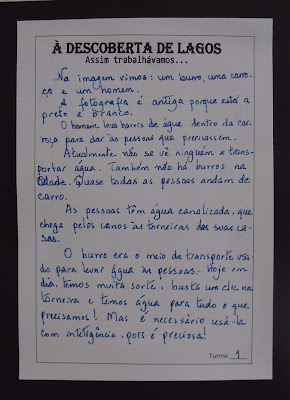 À DESCOBERTA DE LAGOS
Assim trabalhávamos...
Na imagem vimos: um burro, uma carro-
ça e um homem.
A fotografia é antiga porque está a
preto e branco.
O homem leva barris de água dentro da car-
roça para dar às pessoas que precisassem.
Atualmente não se vê ninguém a trans-
portar água. Também não há burros na
cidade. Quase todas as pessoas andam de
carro.
As pessoas têm água canalizada, que
chega pelos canos às torneiras das suas ca-
sas.
O burro era o meio de transporte usa-
do para levar água às pessoas. Hoje em
dia, temos muita sorte, basta um clic na
torneira e temos água para tudo o que
precisamos! Mas é necessário usá-la
com inteligência, pois é preciosa!
Turma: 1